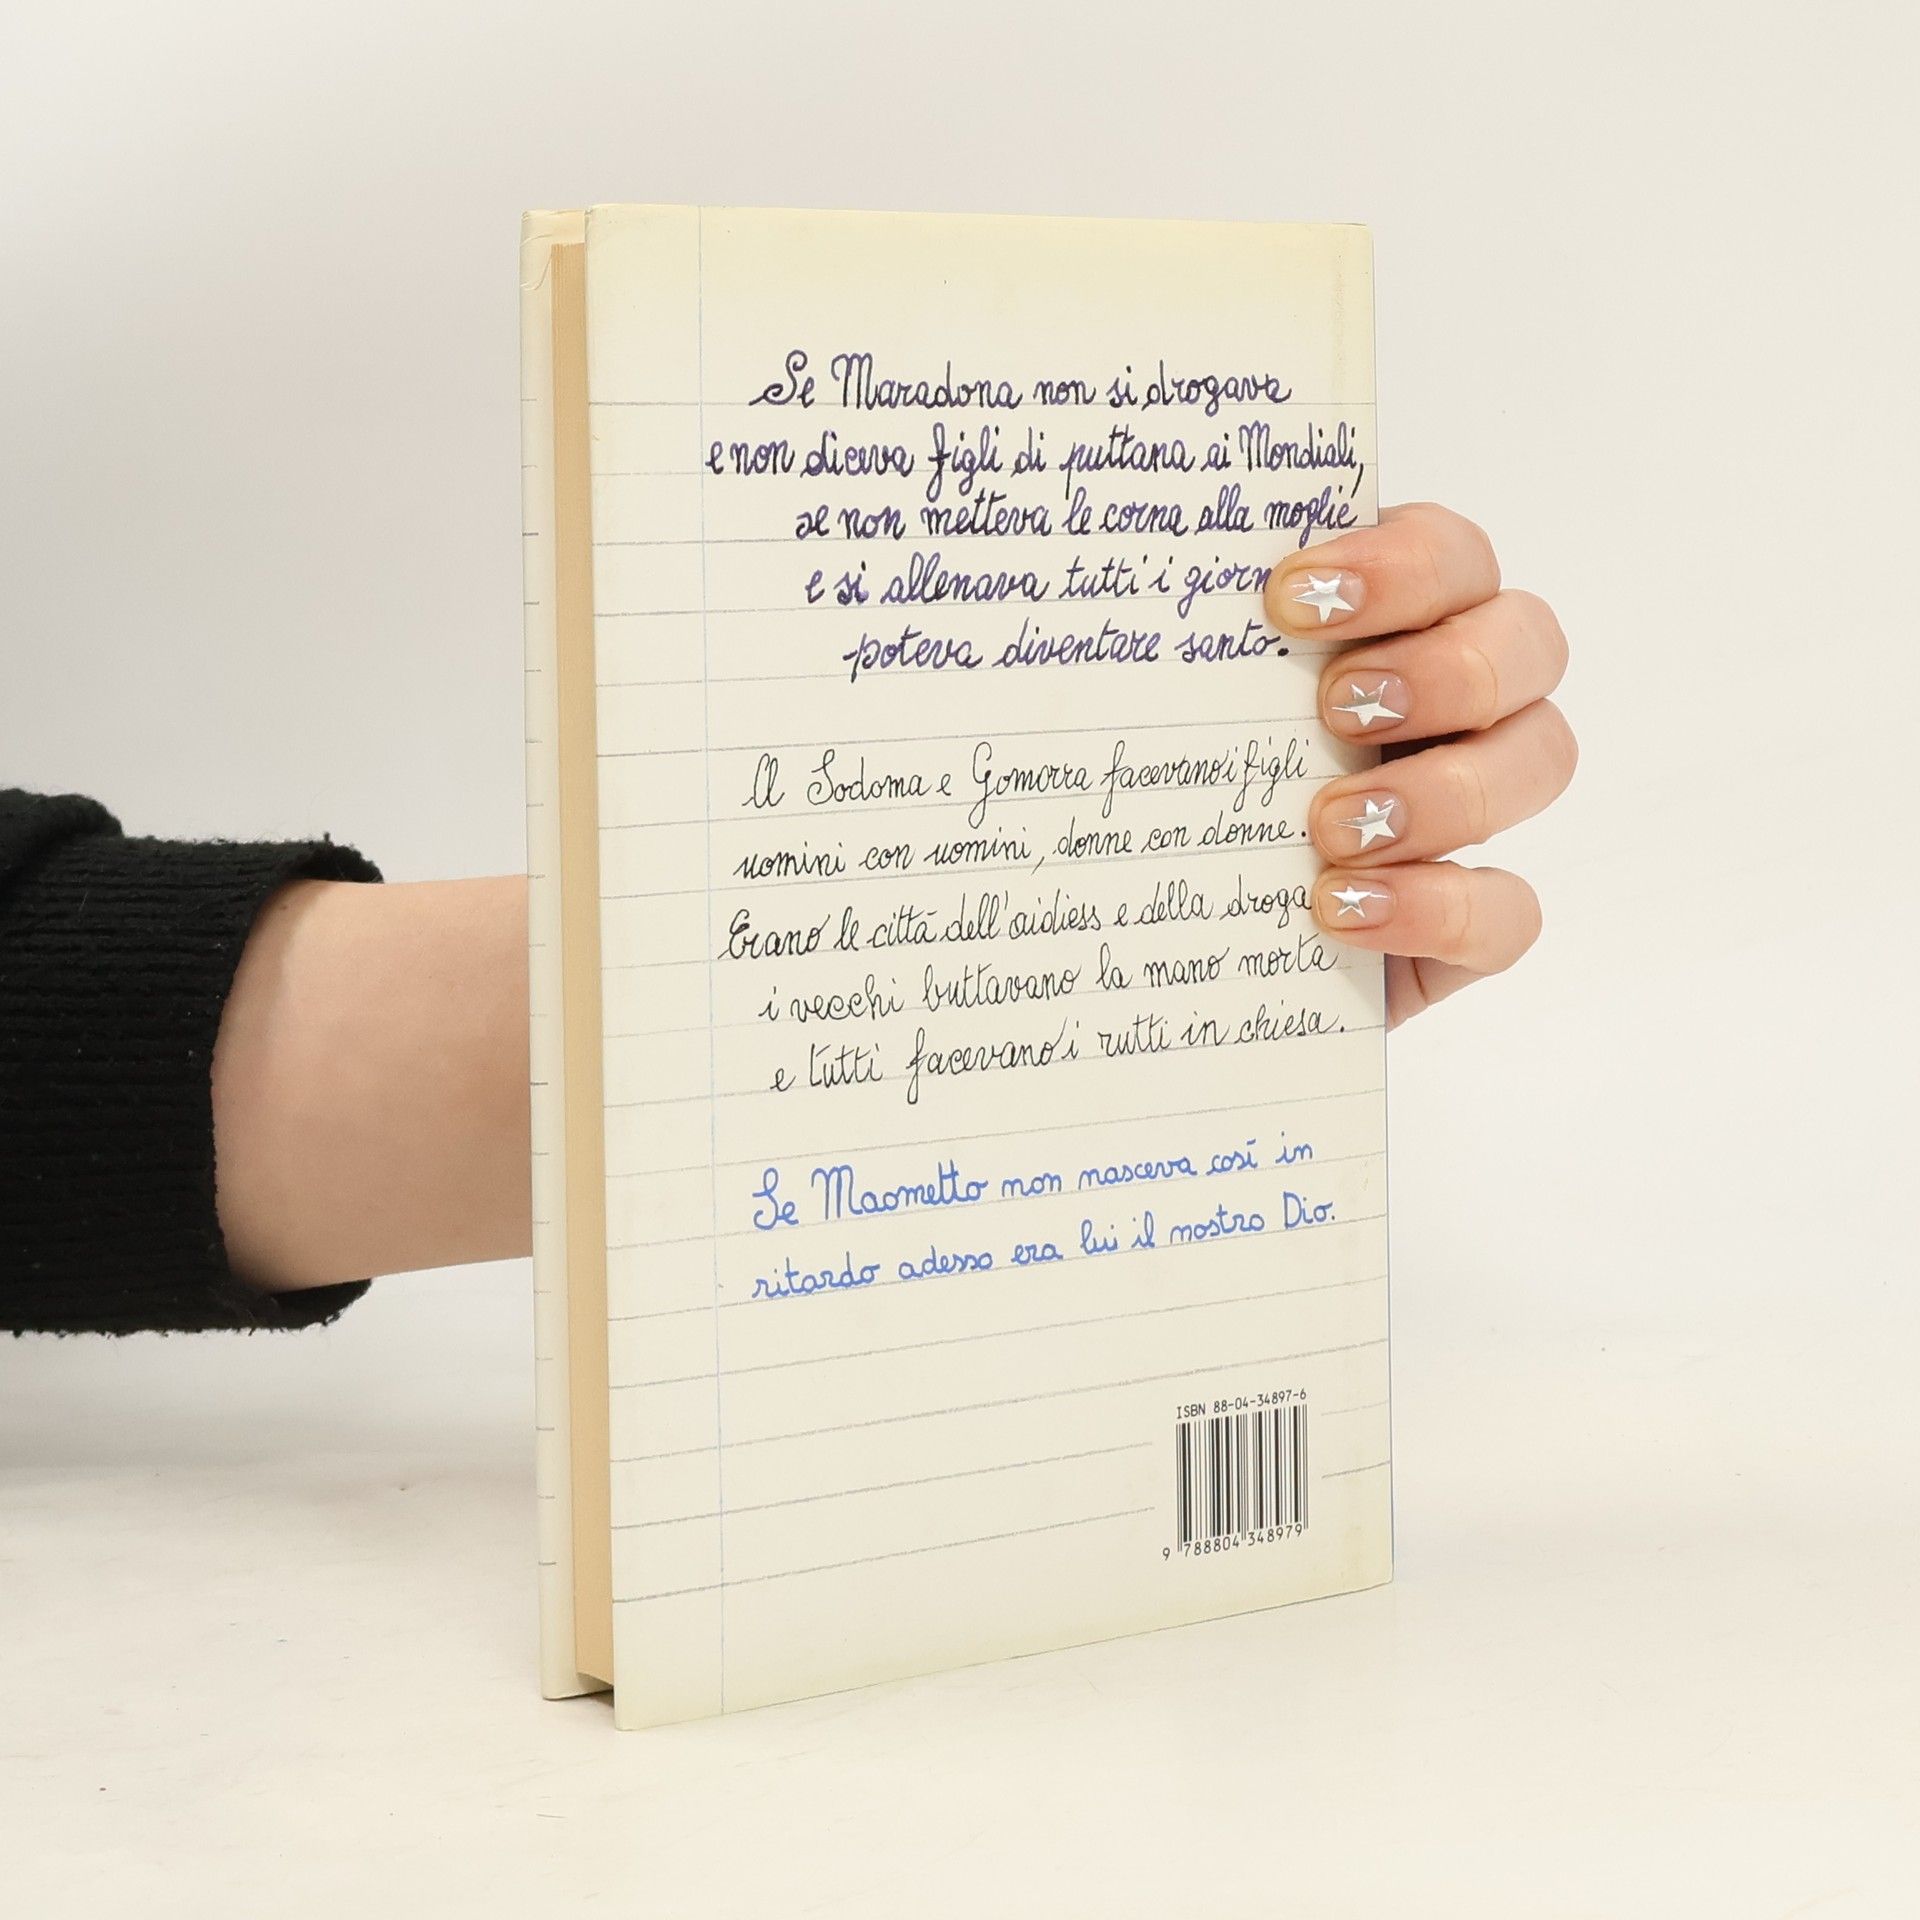 Se Maradona non si drogava
e non diceva figli di puttana ai Mondiali,
se non metteva le corna alla moglie
e si allenava tutti i giorn
poteva diventare santo.
A Sodoma e Gomorra facevano i figli
uomini con uomini, donne con donne.
Erano le città dell'aidiess e della droga
i vecchi buttavano la mano morta
e tutti facevano i rutti in chiesa.
Se Maometto non nasceva così in
ritardo adesso era lui il nostro Dio.
ISBN 88-04-34897-6
9 788804 348979